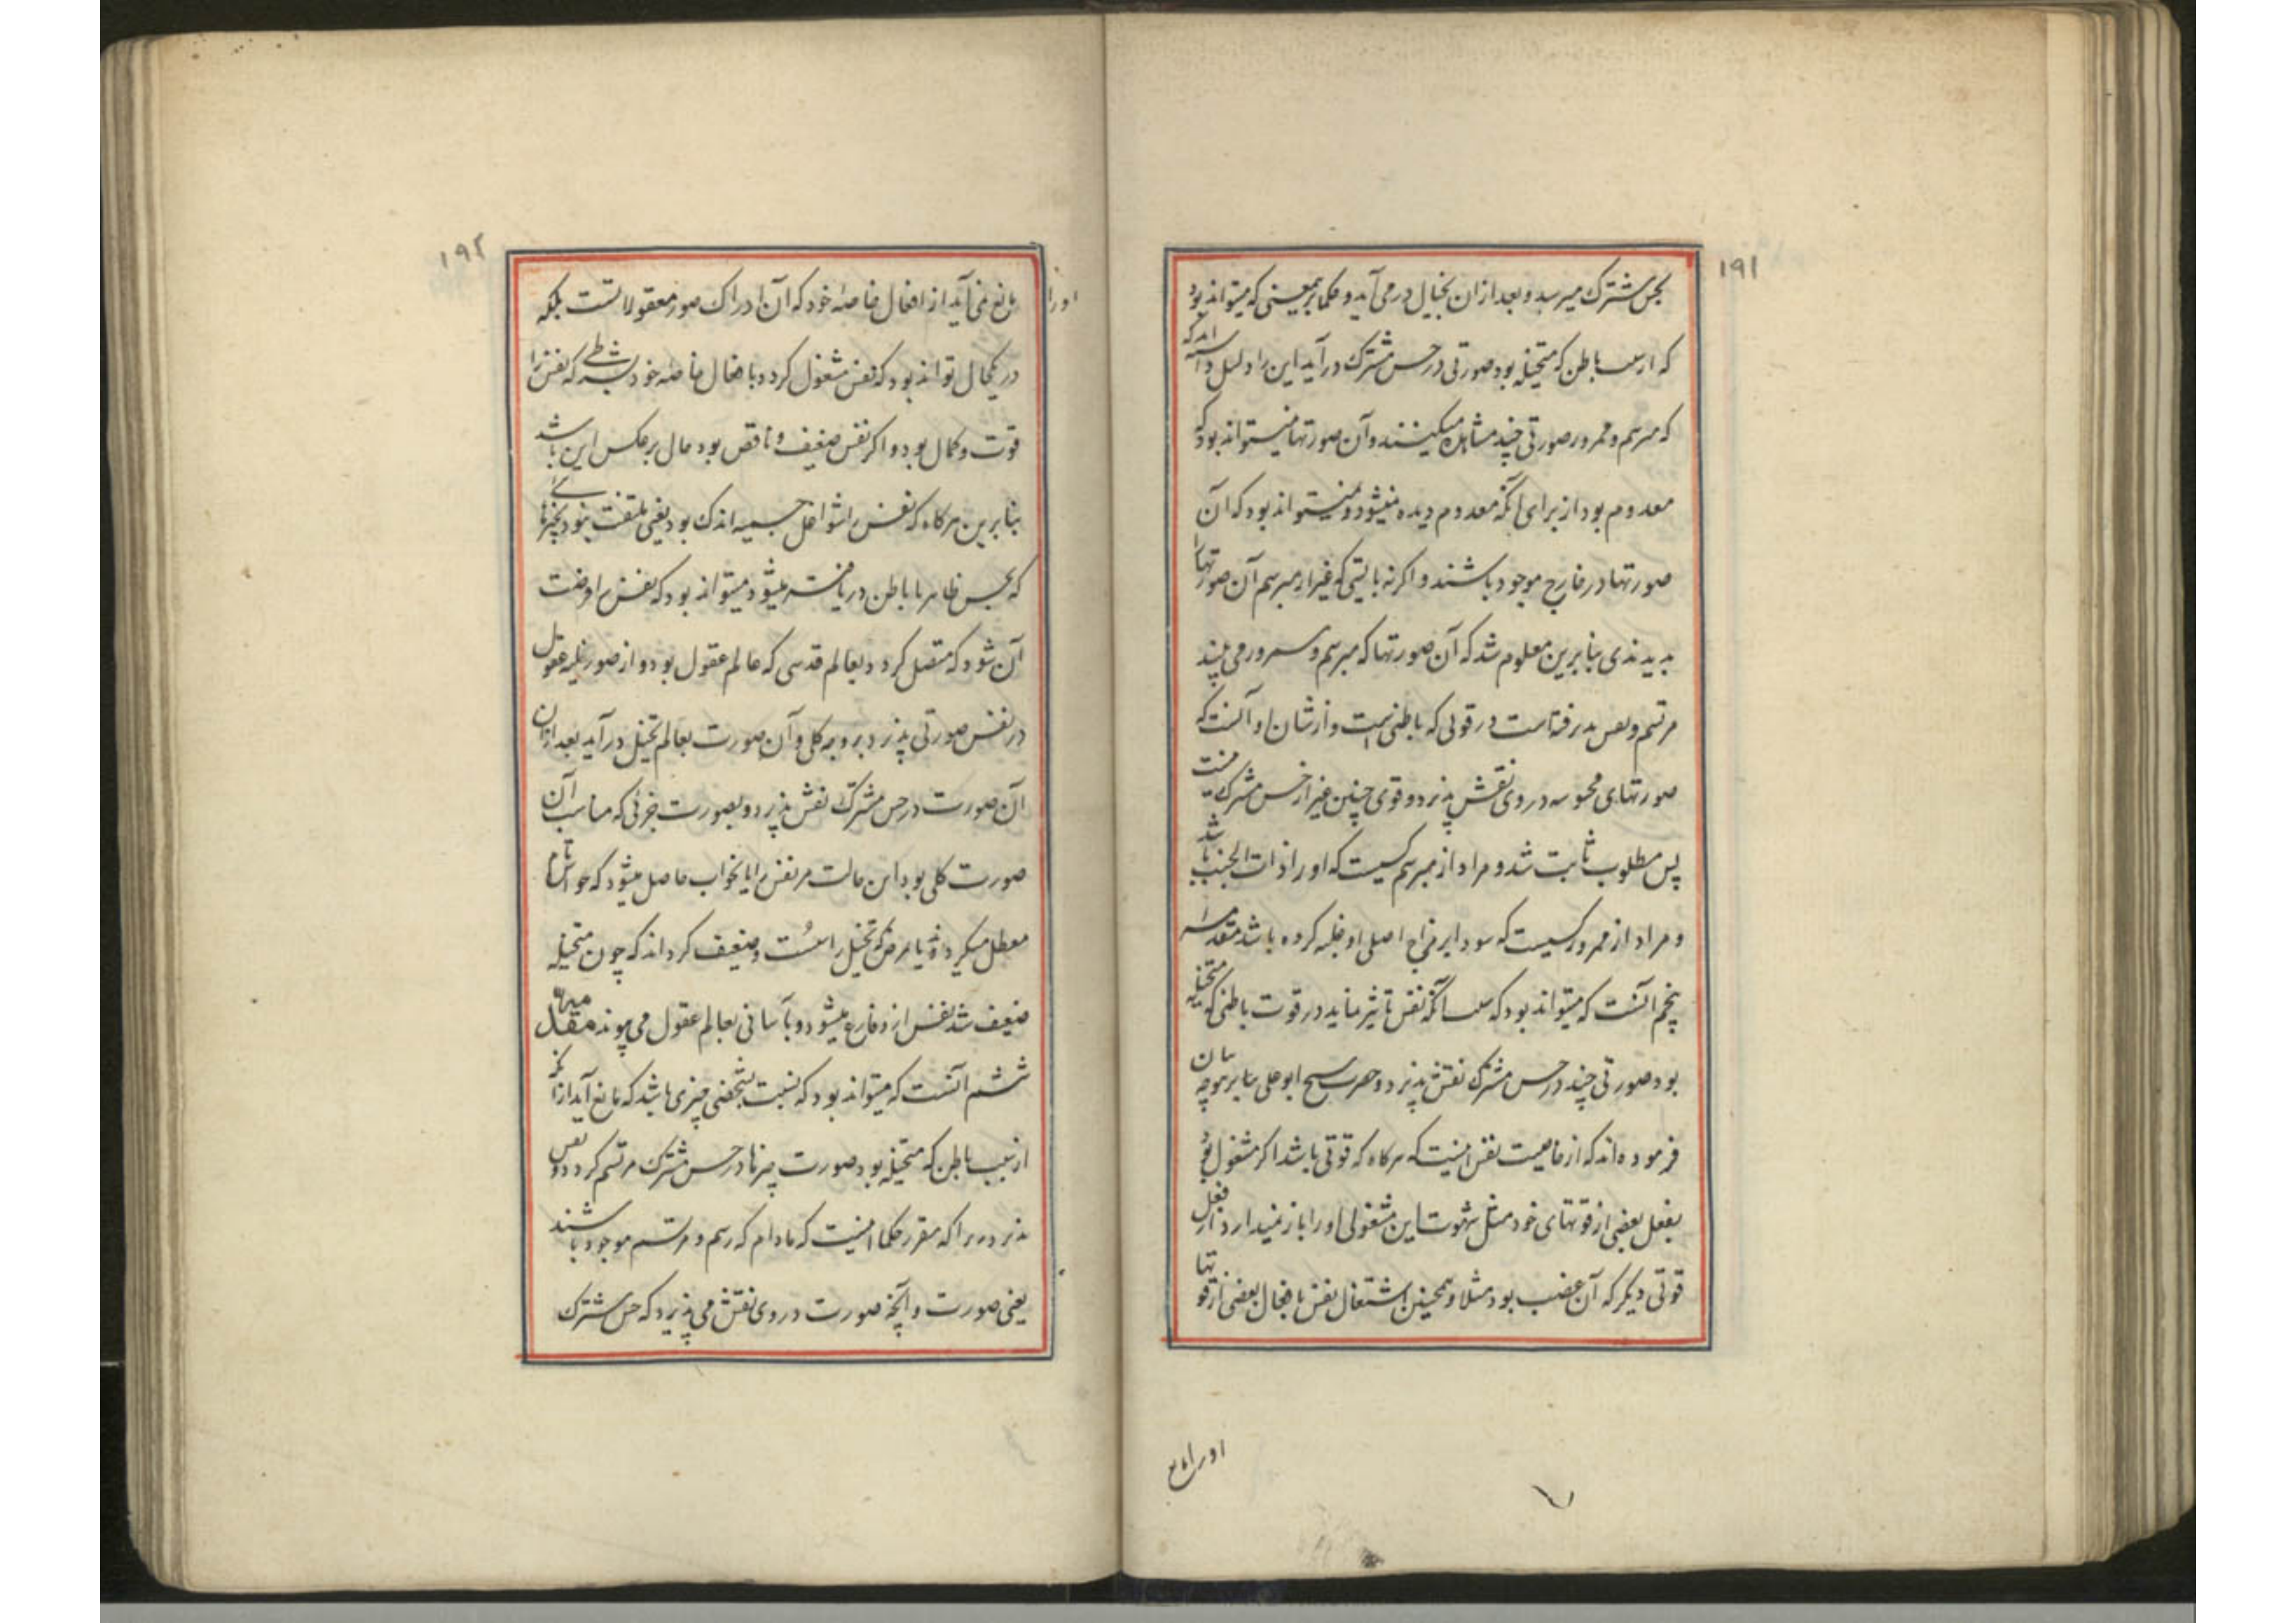 ۱۹۱
بحس مشترک میرسد و بعد از ان بخیال در می آید و حکما برمعنی که میتواند بود
که از سبب باطن که متخیله بود صورتی در حس مشترک درآید این را دلیل داشته اند که
که مبرسم و ممرور صورتی چند مشاهده میکنند و آن صورتها نمیتواند بود که
معدوم بود از برای آنکه معدوم دیده نمیشود و نمیتواند بود که آن
صورتها در خارج موجود باشند و اکر نه بایستی که غیر از مبرسم آن صورتها را
بدیدندی بنابرین معلوم شد که آن صورتها که مبرسم و ممرور می بیند
مرتسم و نقش پذرفتاست در قوتی که باطنی است و از شان او آنست که
صورتهای محسوسه در وی نقش پذیرد و قوی چنین غیر از حس مشترک نیست
پس مطلوب ثابت شد و مراد از مبرسم کسیست که او را ذات الجنب باشد
و مراد از ممرور کسیست که سودا بر مزاج اصلی او غلبه کرده باشد مقدمه
پنجم آنست که میتواند بود که بسبب آنکه نفس تاثیر نماید در قوت باطنی که متخیله
بود صورتی چند در حس مشترک نقش پذیرد و حضرت شیخ ابوعلی بنابر موجه بیان
فرموده اند که از خاصیت نفس اینست که هرکاه که قوتی باشد اکر مشغول بود
بفعل بعضی از قوتهای خود مثل شهوت این مشغولی او را باز نمیدارد از فعل
قوتی دیکر که آن غضب بود مثلا و همچنین اشتغال نفس بافعال بعضی از قوتها
اورا مانع
۱۹۲
اورا
مانع نمی آید از افعال خاصه خود که آن ادراک صور معقولاتست بلکه
در یکحال تواند بود که نفس مشغول کردد بافعال خاصه خود بشرطی که نفس را
قوت و کمال بود و اکر نفس ضعیف و ناقص بود حال برعکس این باشد
بنابرین هرکاه که نفس را شواغل حسیه اندک بود یعنی ملتفت نبود بچیزهائی
که بحس ظاهر یا باطن دریافته میشود میتواند بود که نفس را فرصت
آن شود که متصل کردد بعالم قدسی که عالم عقول بود و از صور عقول
در نفس صورتی پذیرد بر وجه کلی و آن صورت بعالم تخیل درآید بعد از ان
آن صورت در حس مشترک نقش پذیرد و بصورت جزئی که مناسب آن
صورت کلی بود این حالت مر نفس را یا بخواب حاصل میشود که حواس تمام
معطل میکردند و یا مرض که تخیل را سست و ضعیف کرداند که چون متخیله
ضعیف شد نفس از و فارغ میشود و بآسانی بعالم عقول می پیوندد مقدمه
ششم آنست که میتواند بود که نسبت بشخصی چیزی باشد که مانع آید از آنکه
از سبب باطن که متخیله بود صورت چیزها در حس مشترک مرتسم کردد و نقش
پذیرد زیرا که مقرر حکما اینست که مادام که راسم و مرتسم موجود باشند
یعنی صورت و آنچه صورت در وی نقش می پذیرد که حس مشترک